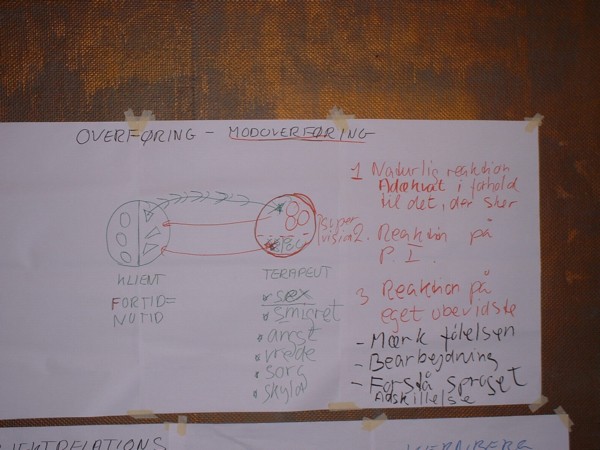 OVERFØRING - MODOVERFØRING
KLIENT
FORTID=
NUTID
super
vision
TERAPEUT
sex
smigret
angst
vrede
sorg
skyld
1 Naturlig reaktion
Adækvat i forhold
til det, der sker
2. Reaktion på
P. I.
3 Reaktion på
eget ubevidste
- Mærk følelsen
- Bearbejdning
- Forstå sproget
Adskillelse
KERNBERG